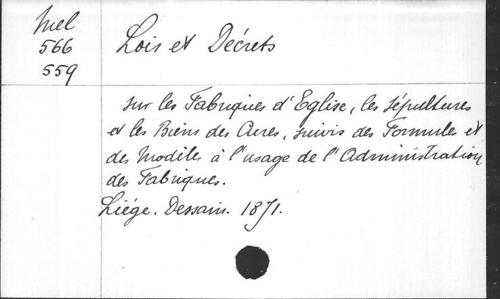 Mel
566
559
Lois et Décrets
sur les Fabriques d'Eglise, les sépultures
et les Biens des Cures, suivis des Formules et
des Modèles à l'usage de l'Administration
des Fabriques.
Liége. Dessain. 1871.